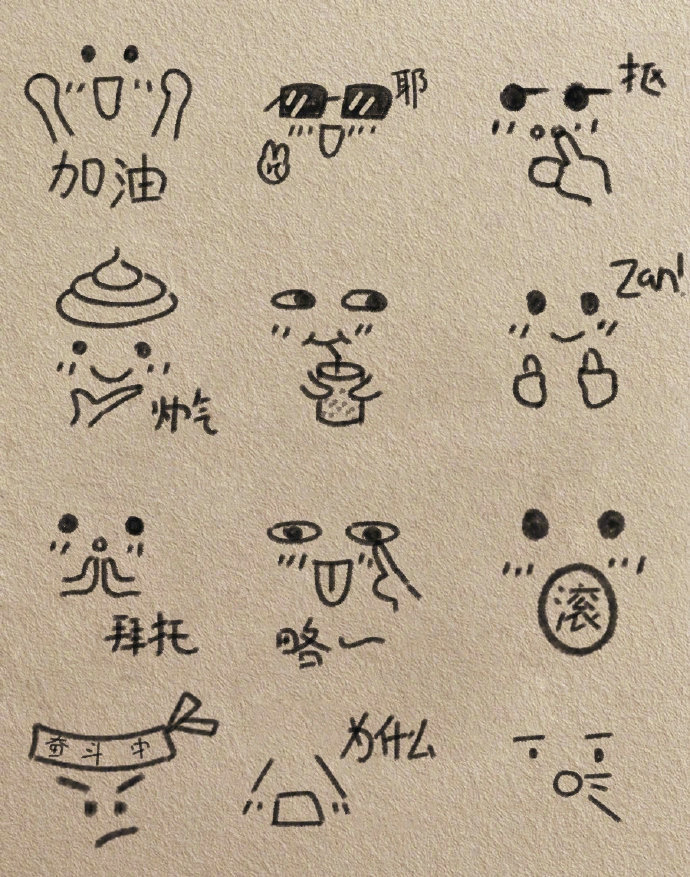 耶
抠
加油
Zan!
帅气
拜托
略~
滚
奋斗中
为什么